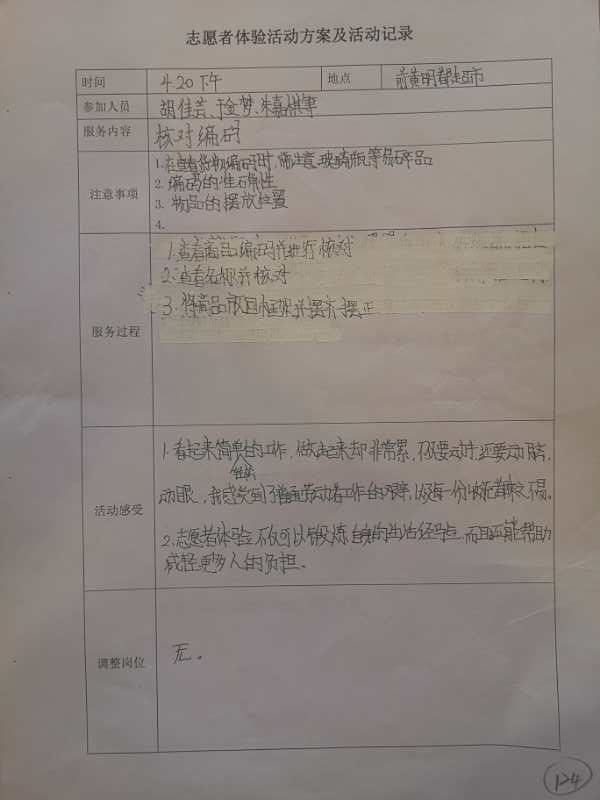 志愿者体验活动方案及活动记录
时间 4.20下午 地点 前黄明都超市
参加人员 胡佳芸、于金梦、朱嘉
服务内容 核对编码
注意事项
1.在查看货物编码时,需注意玻璃瓶等易碎产品
2.编码的准确性
3.物品的摆放位置
4.
服务过程
1.查看商品编码并进行核对
2.查看名称并核对
3.将商品放回框架并摆齐摆正
活动感受
1.看起来简单的工作,做起来却非常累,不仅要动手,还要动脑,
动眼,我感受到了普通劳动者工作的艰辛,以及每一份 来之不易。
2.志愿者体验不仅可以锻炼自身的生活经验,而且还能帮助
减轻更多人的负担。
调整岗位 无。
124